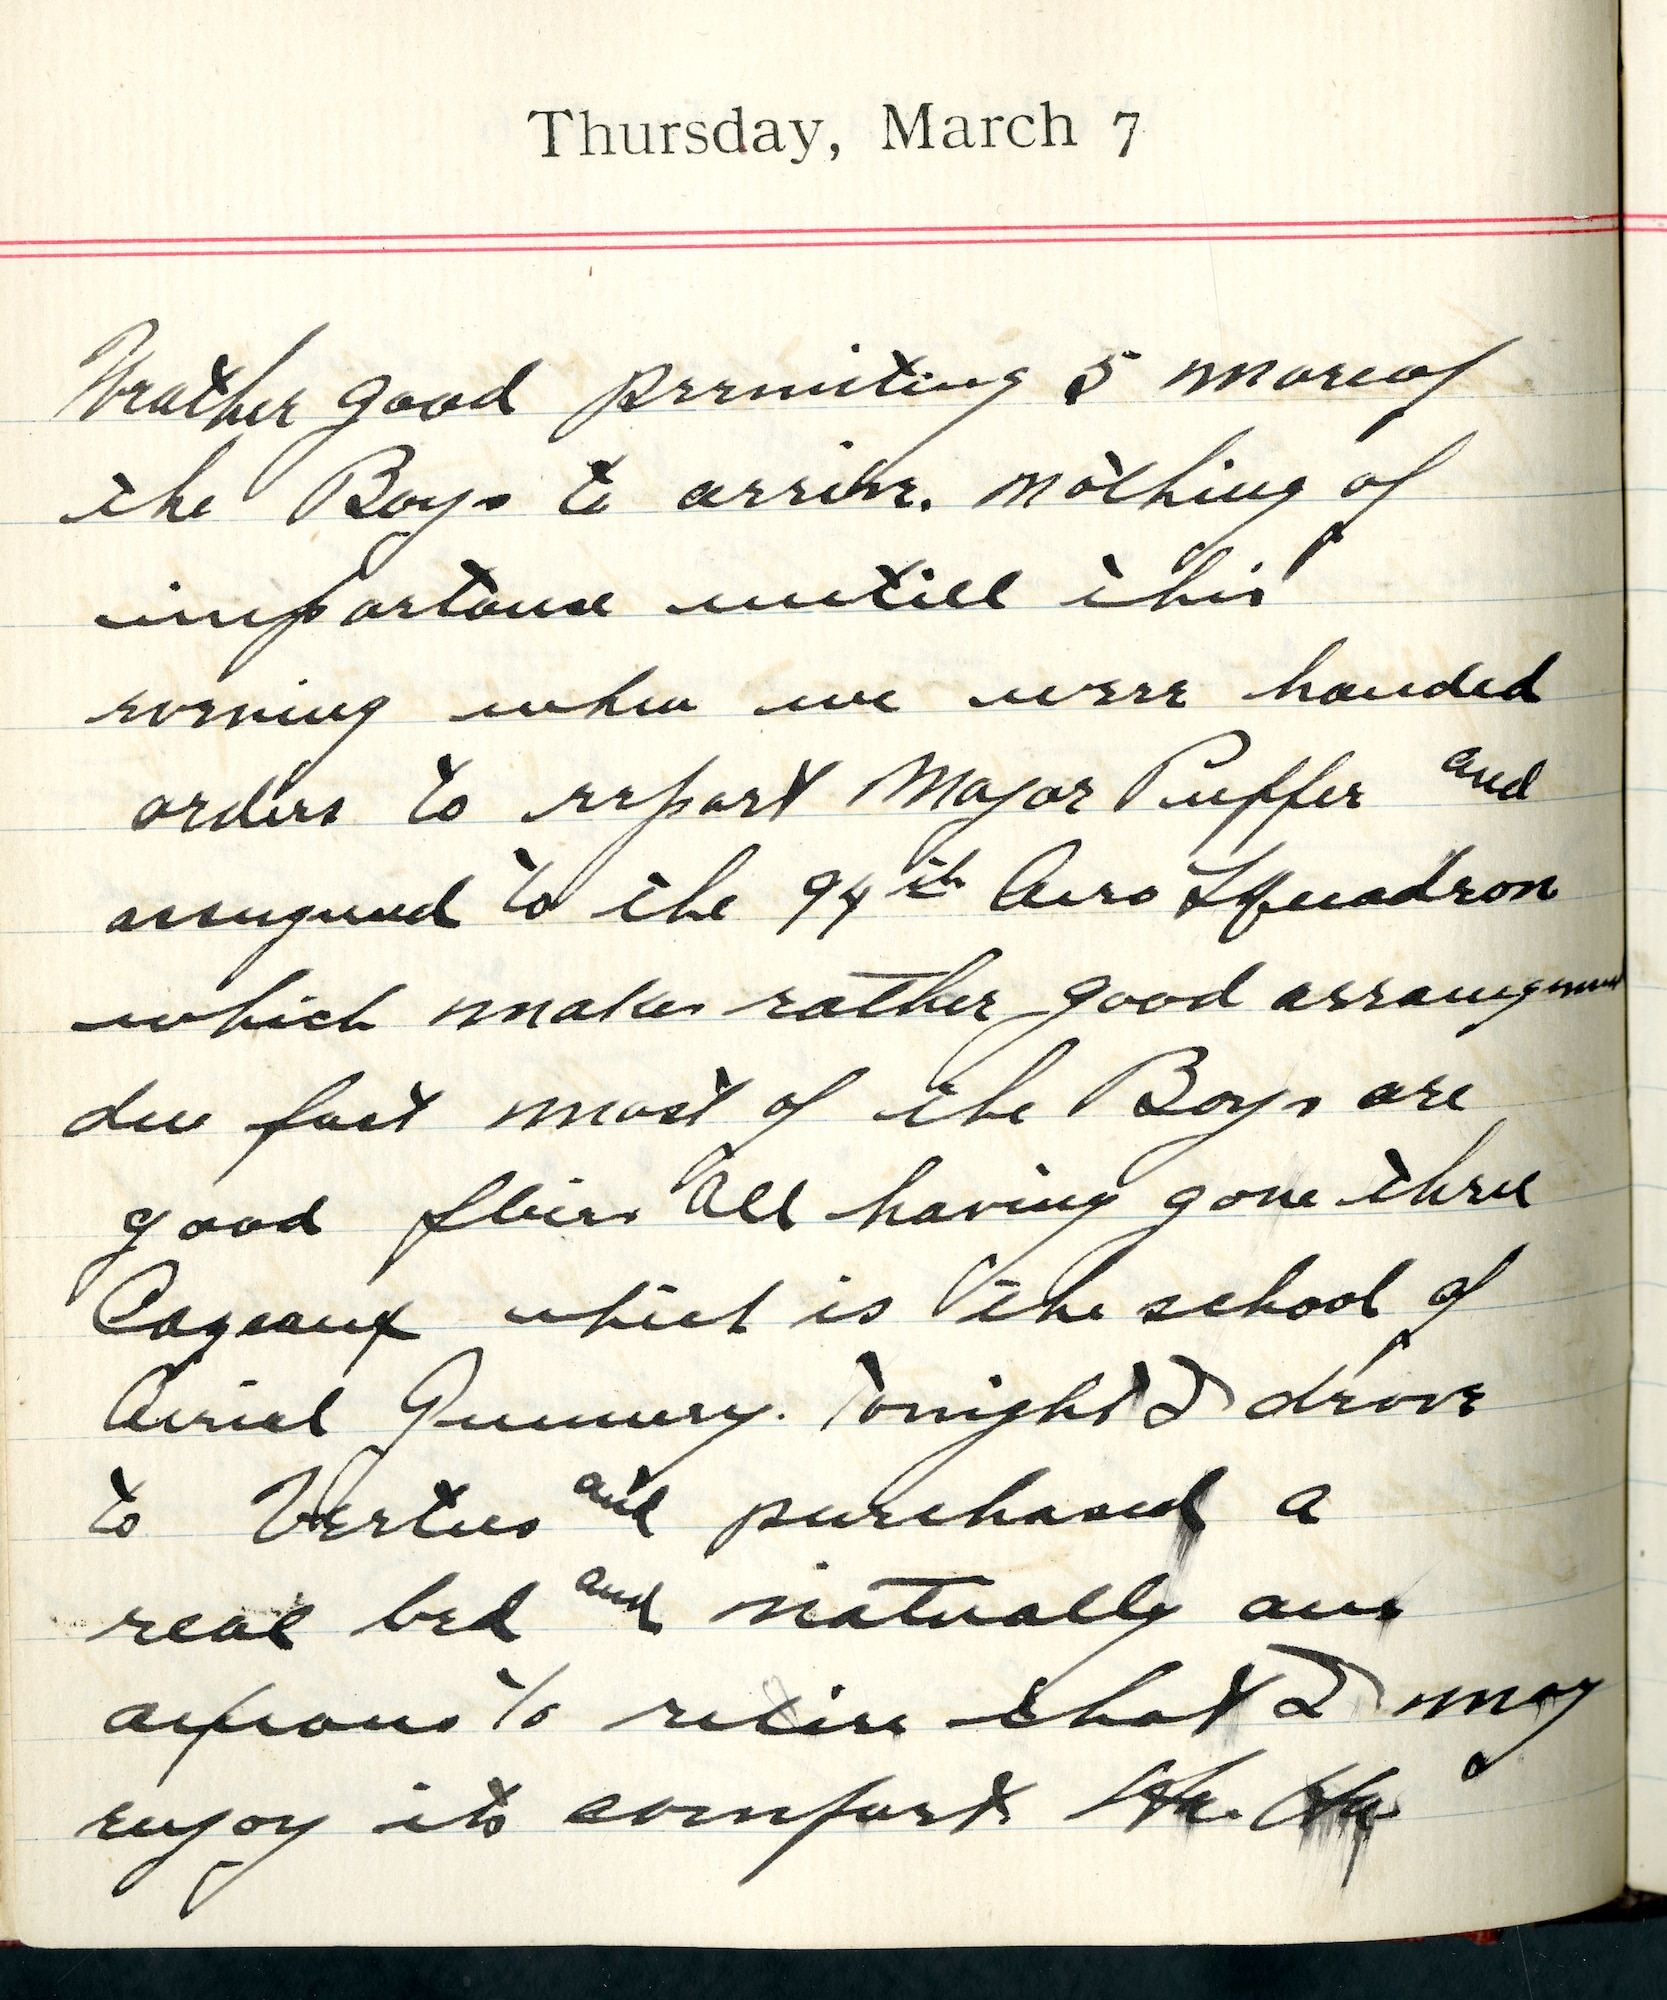 Thursday, March 7
Weather good permiting 5 more of
the Boys to arrive. nothing of
importance untill this
evening when we were handed
orders to report Major Puffer and
assigned to the 94th Aero Squadron
which makes rather good arrangement
due fact most of the Boys are
good fliers All having gone thru
Cazeaux which is the school of
Aerial Gunnery. Tonight I drove
to Vertus and purchased a
real bed and natually am
anxious to retire that I may
enjoy its comforts